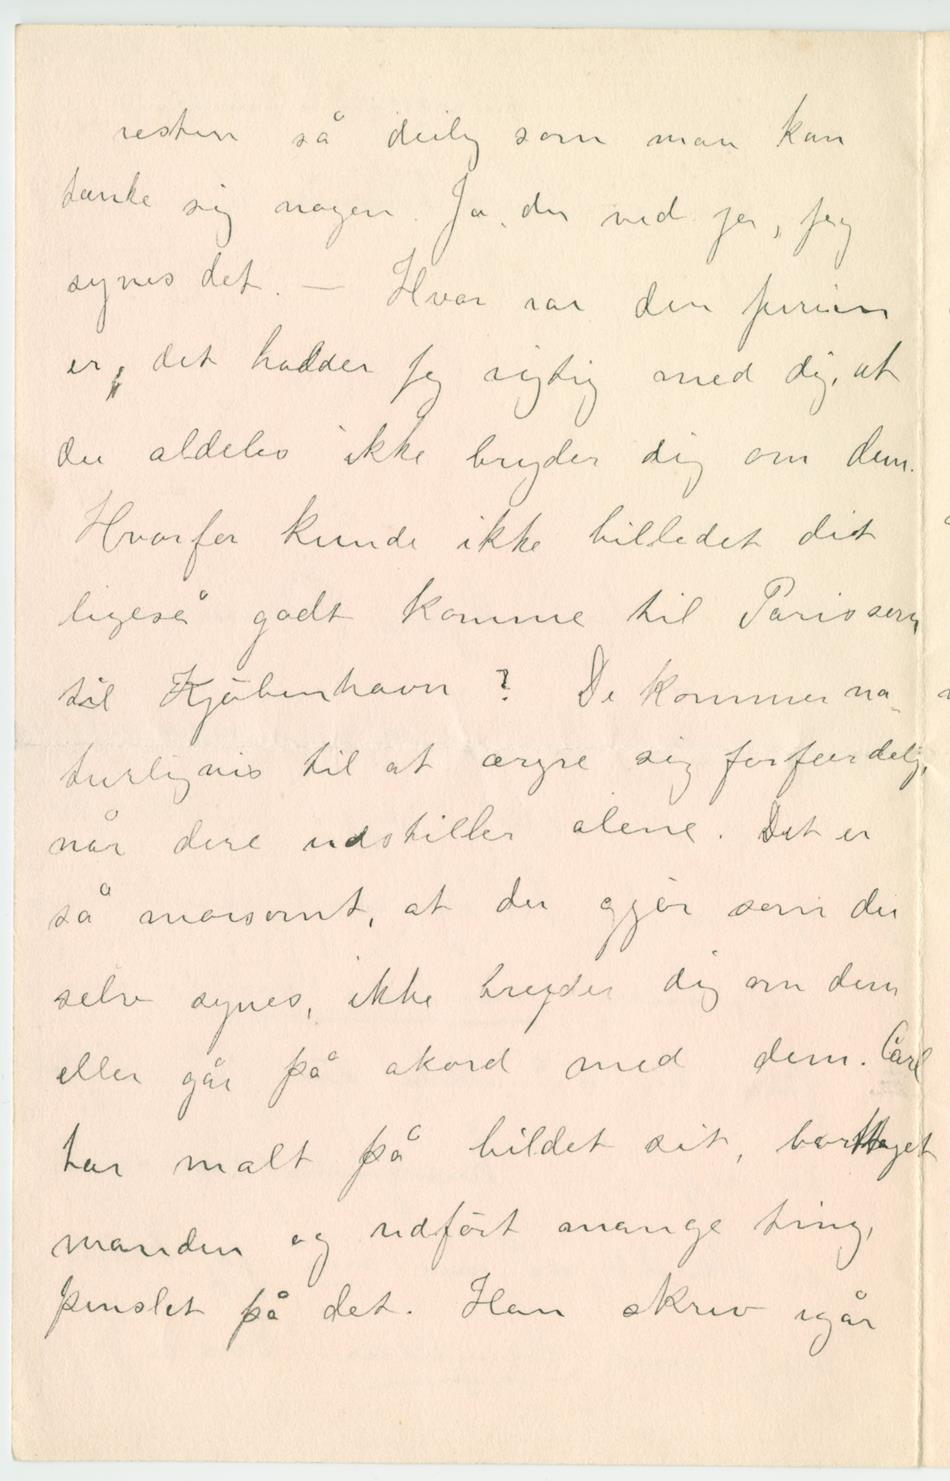 resten så deilig som man kan
tænke sig nogen. Ja, du ved jo, jeg
synes det. — Hvor rar den
er, det holder jeg rigtig med dig, at
du aldeles ikke bryder dig om dem.
Hvorfor kunde ikke billedet dit
ligeså godt komme til Paris som
til Kjöbenhavn? De kommer na-
turligvis til at ærgre sig forfærdelig,
når dere udstiller alene. Det er
så morsomt, at du gjör som du
selv synes, ikke bryder dig om dem
eller går på akord med dem. Carl
har malt på bildet sit, borttaget
manden og udfört mange ting,
penslet på det. Han skrev igår